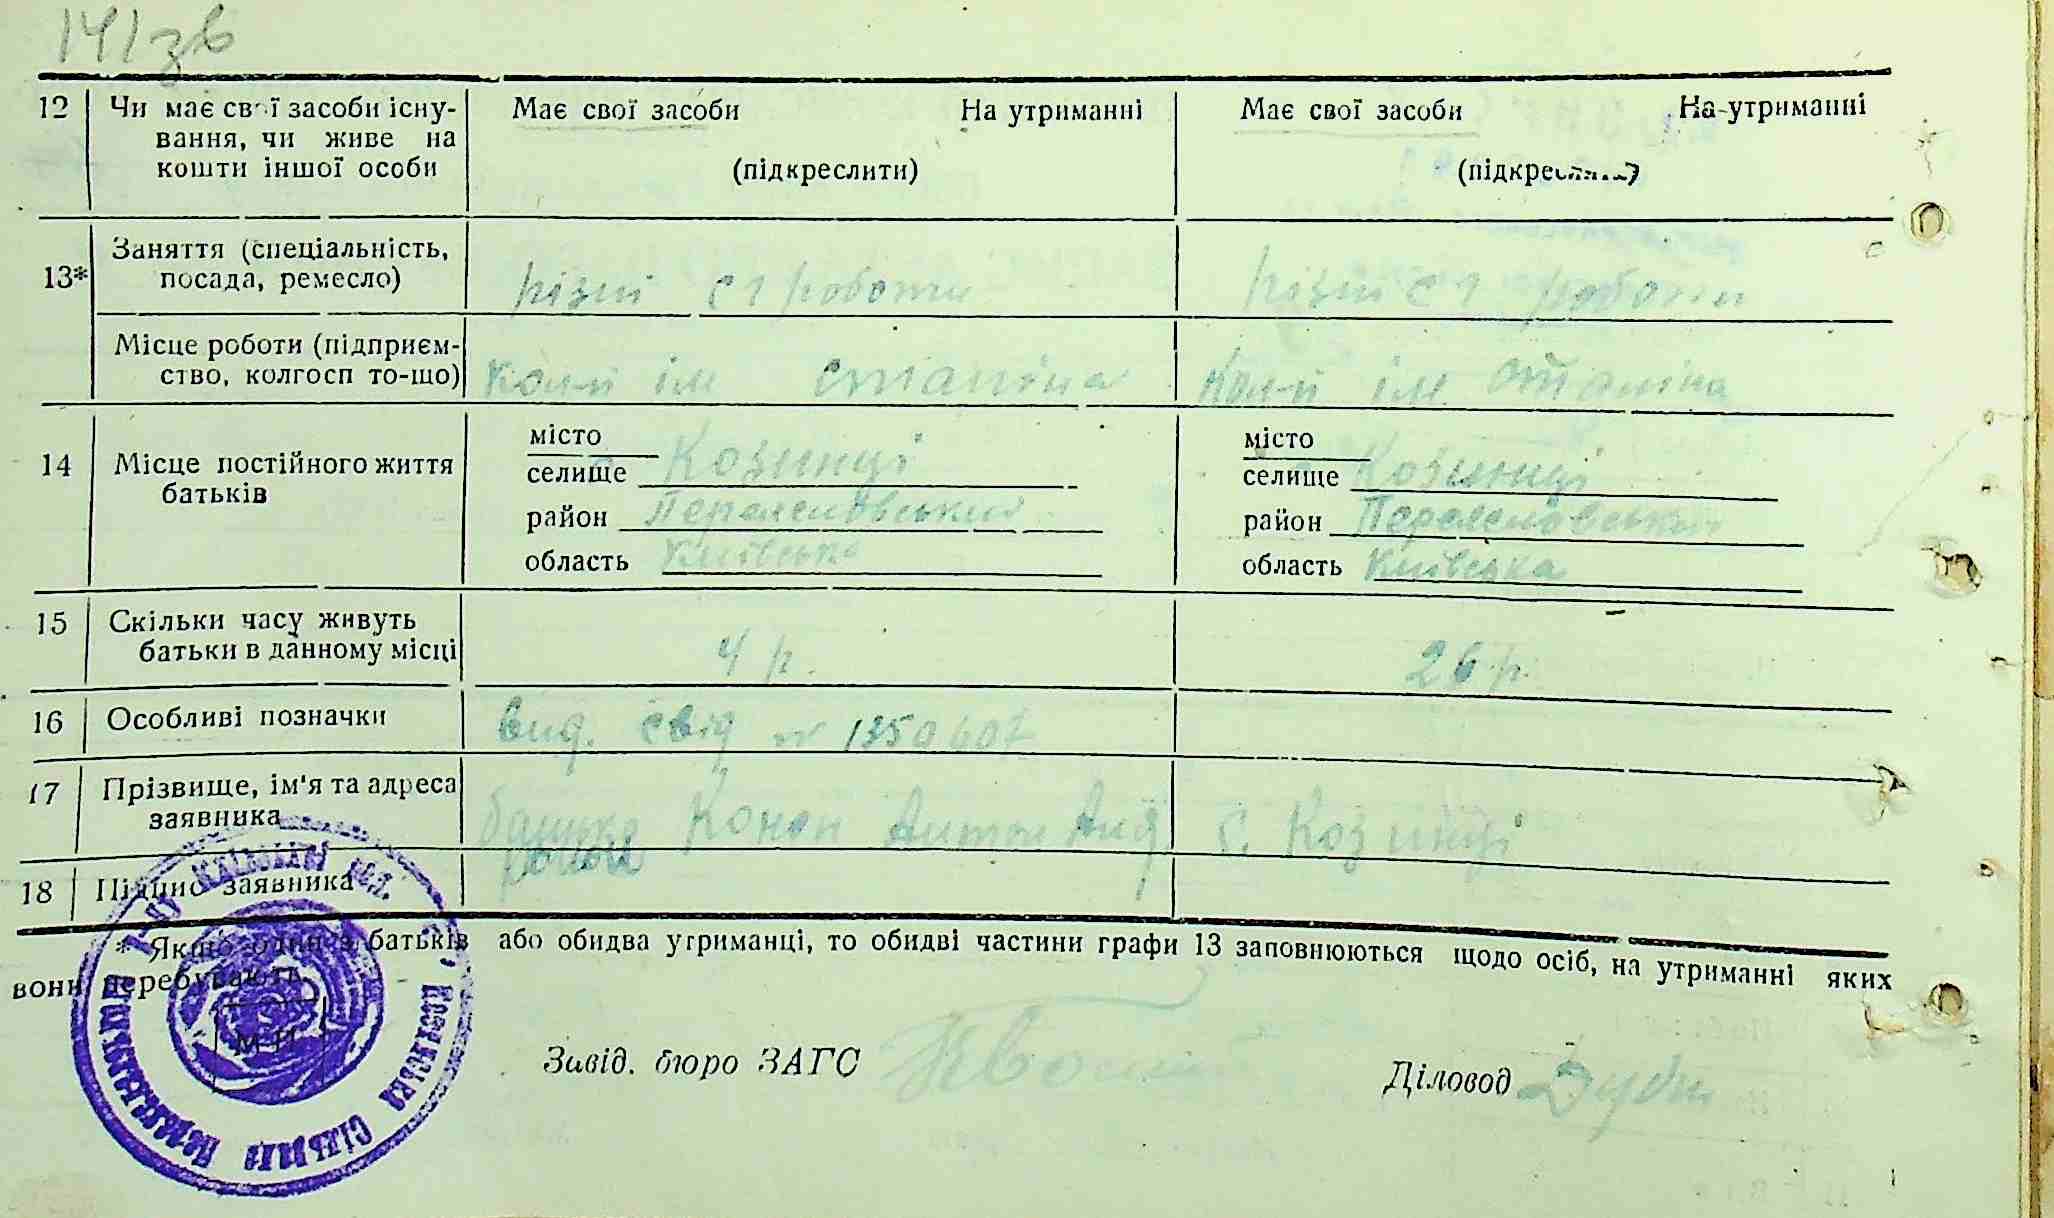 141 зв
12 Чи має свої засоби існу- Має свої засоби На утриманні Має свої засоби На утриманні
вання, чи живе на
кошти іншої особи (підкреслити) (підкреслити)
13* Заняття (спеціальність,
посада, ремесло) різні с г роботи різні с г роботи
Місце роботи (підприєм-
ство, колгосп то-що) кол-п ім сталіна кол-п ім сталіна
14 Місце постійного життя
батьків
місто місто
селище Козинці селище Козинці
район Переясловський район Переясловський
область Київська область Київська
15 Скільки часу живуть
батьки в данному місці 4 р. 26 р.
16 Особливі позначки вид. свід № 1350607
17 Прізвище, ім'я та адреса
заявника батько Конон Антон Анд с. Козинці
18 Підпис заявника
* Якщо один з батьків або обидва утриманці, то обидві частини графи 13 заповнюються щодо осіб, на утриманні яких
вони перебувають.
М П
Завід. бюро ЗАГС
Діловод
сільрада